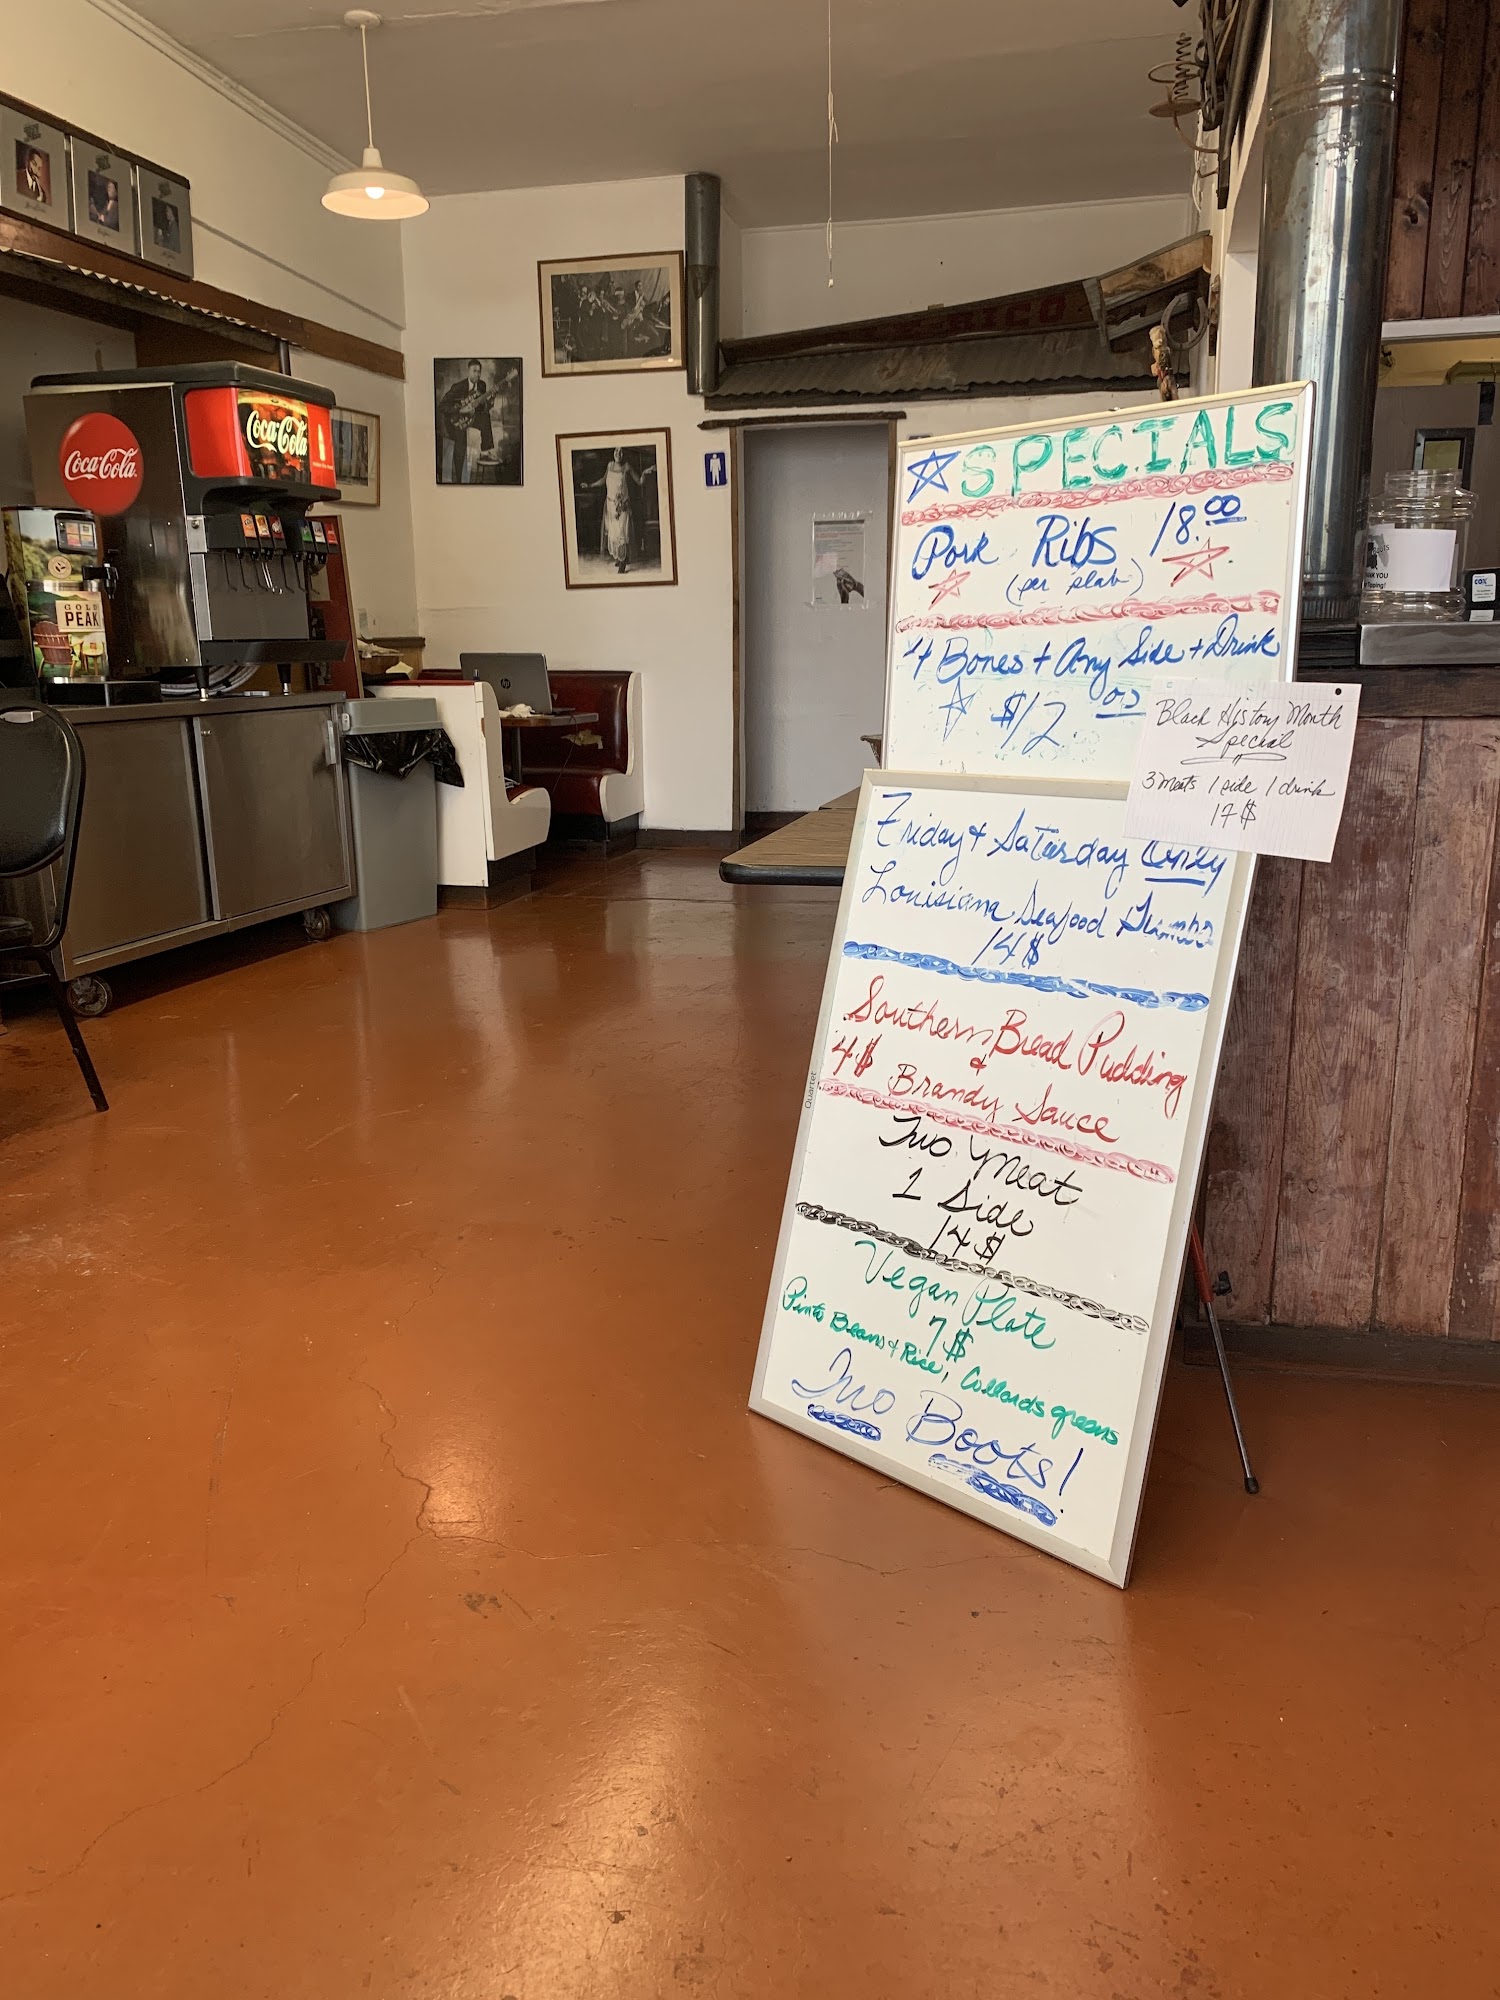 SPECIALS
Pork Ribs 18.00
(per slab)
4 Bones + Any Side + Drink
$12.00
Black History Month
Special
3 meats 1 side 1 drink
17$
Friday & Saturday Only
Louisiana Seafood Gumbo
14$
Southern Bread Pudding
&
4$ Brandy Sauce
Two Meat
1 Side
14$
Vegan Plate
7$
Pinto Beans & Rice, Collards greens
Two Boots!
Quartet
Coca-Cola
Coca-Cola
GOLD
PEAK
hp
RICO
THANK YOU
COX